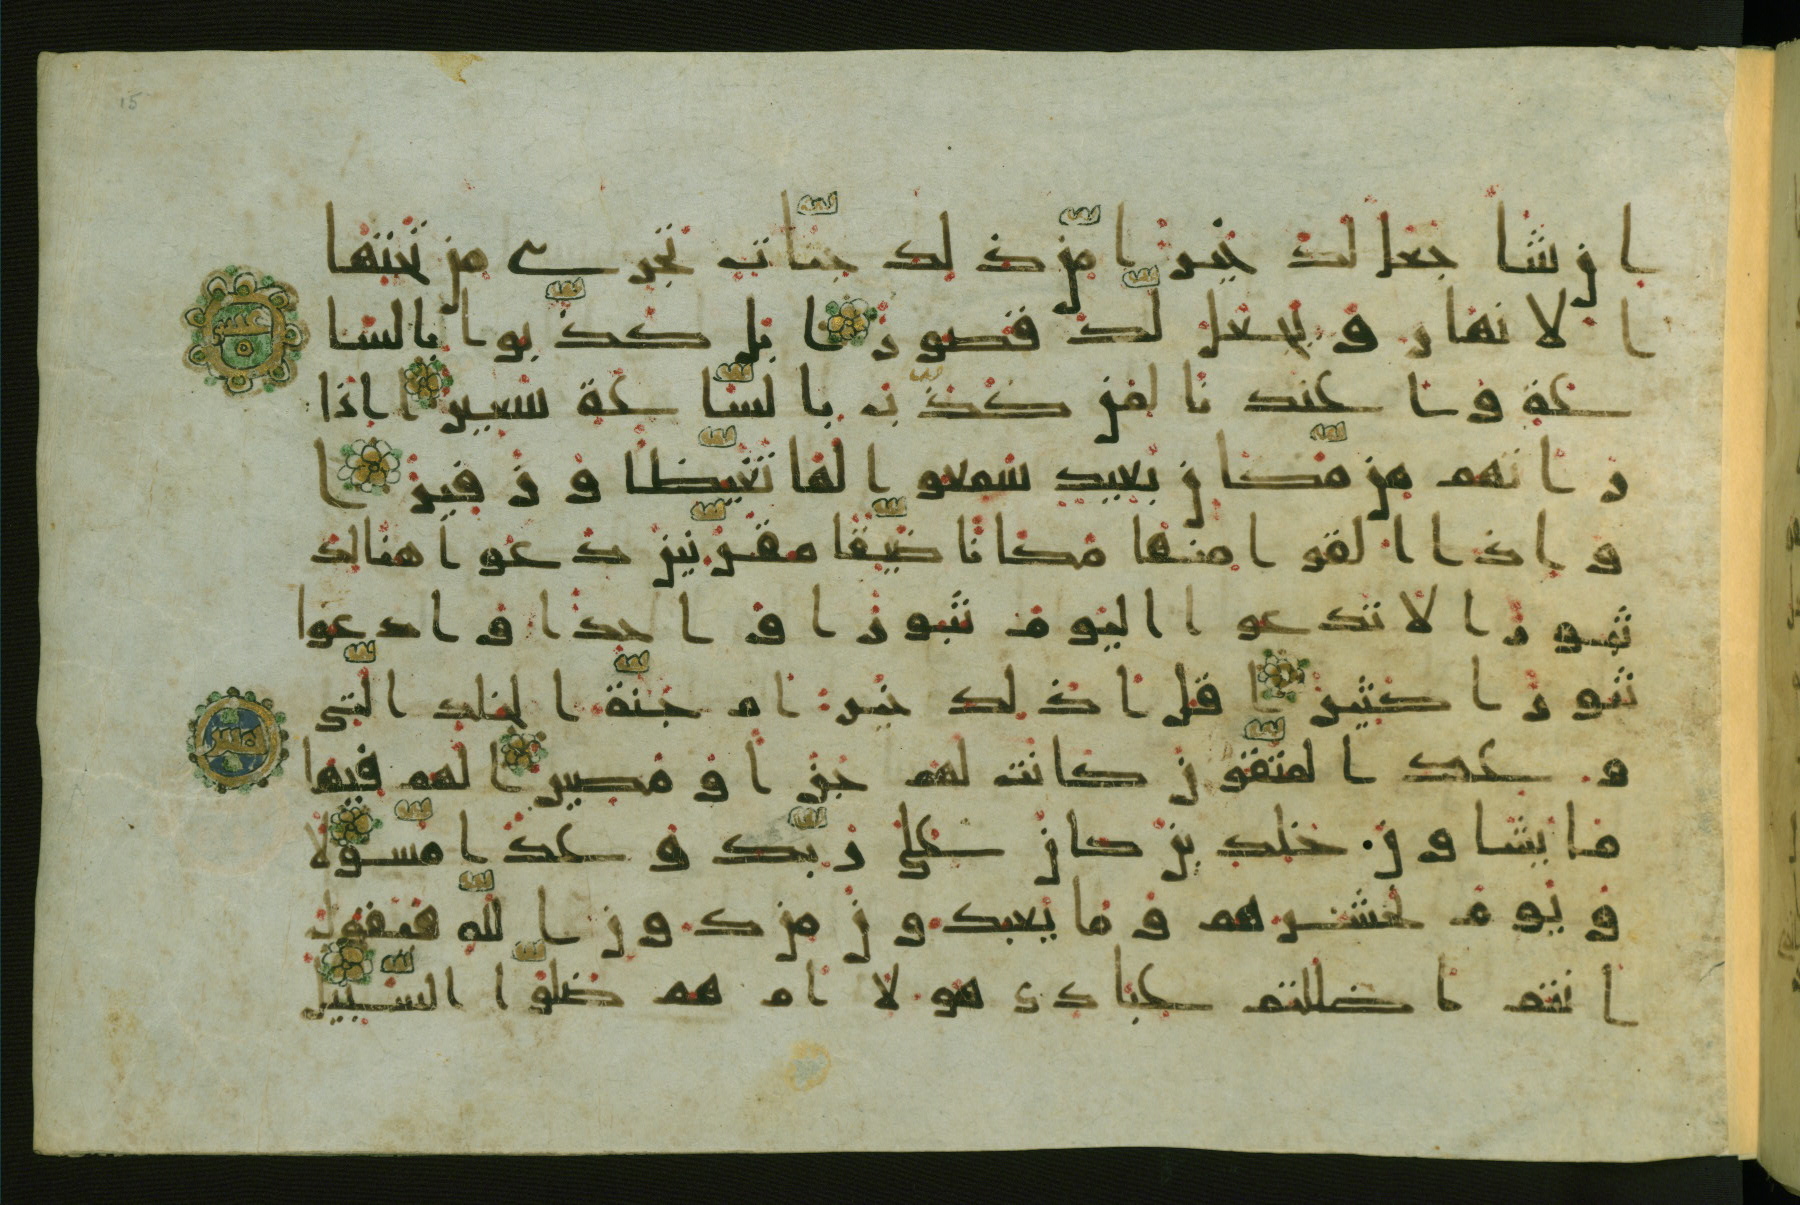 15
ان شا جعل لك خيرا من ذلك جنات تجري من تحتها
ا لانهار و يجعل لك قصورا بل كذبوا بالسا
عة و ا عتدنا لمن كذب بالساعة سعيرا اذا
ر اتهم من مكان بعيد سمعوا لها تغيظا و زفيرا
و اذا القوا منها مكانا ضيقا مقرنين دعوا هنالك
ثبورا لا تدعوا اليوم ثبورا و احدا و ادعوا
ثبورا كثيرا قل اذلك خير ام جنة الخلد التي
و عد المتقون كانت لهم جزا و مصيرا لهم فيها
ما يشاون خلدين كان على ربك و عدا مسولا
و يوم نحشرهم و ما يعبدون من دون الله فيقول
ا نتم اضللتم عبادي هولا ام هم ضلوا السبيل
خمس
عشر